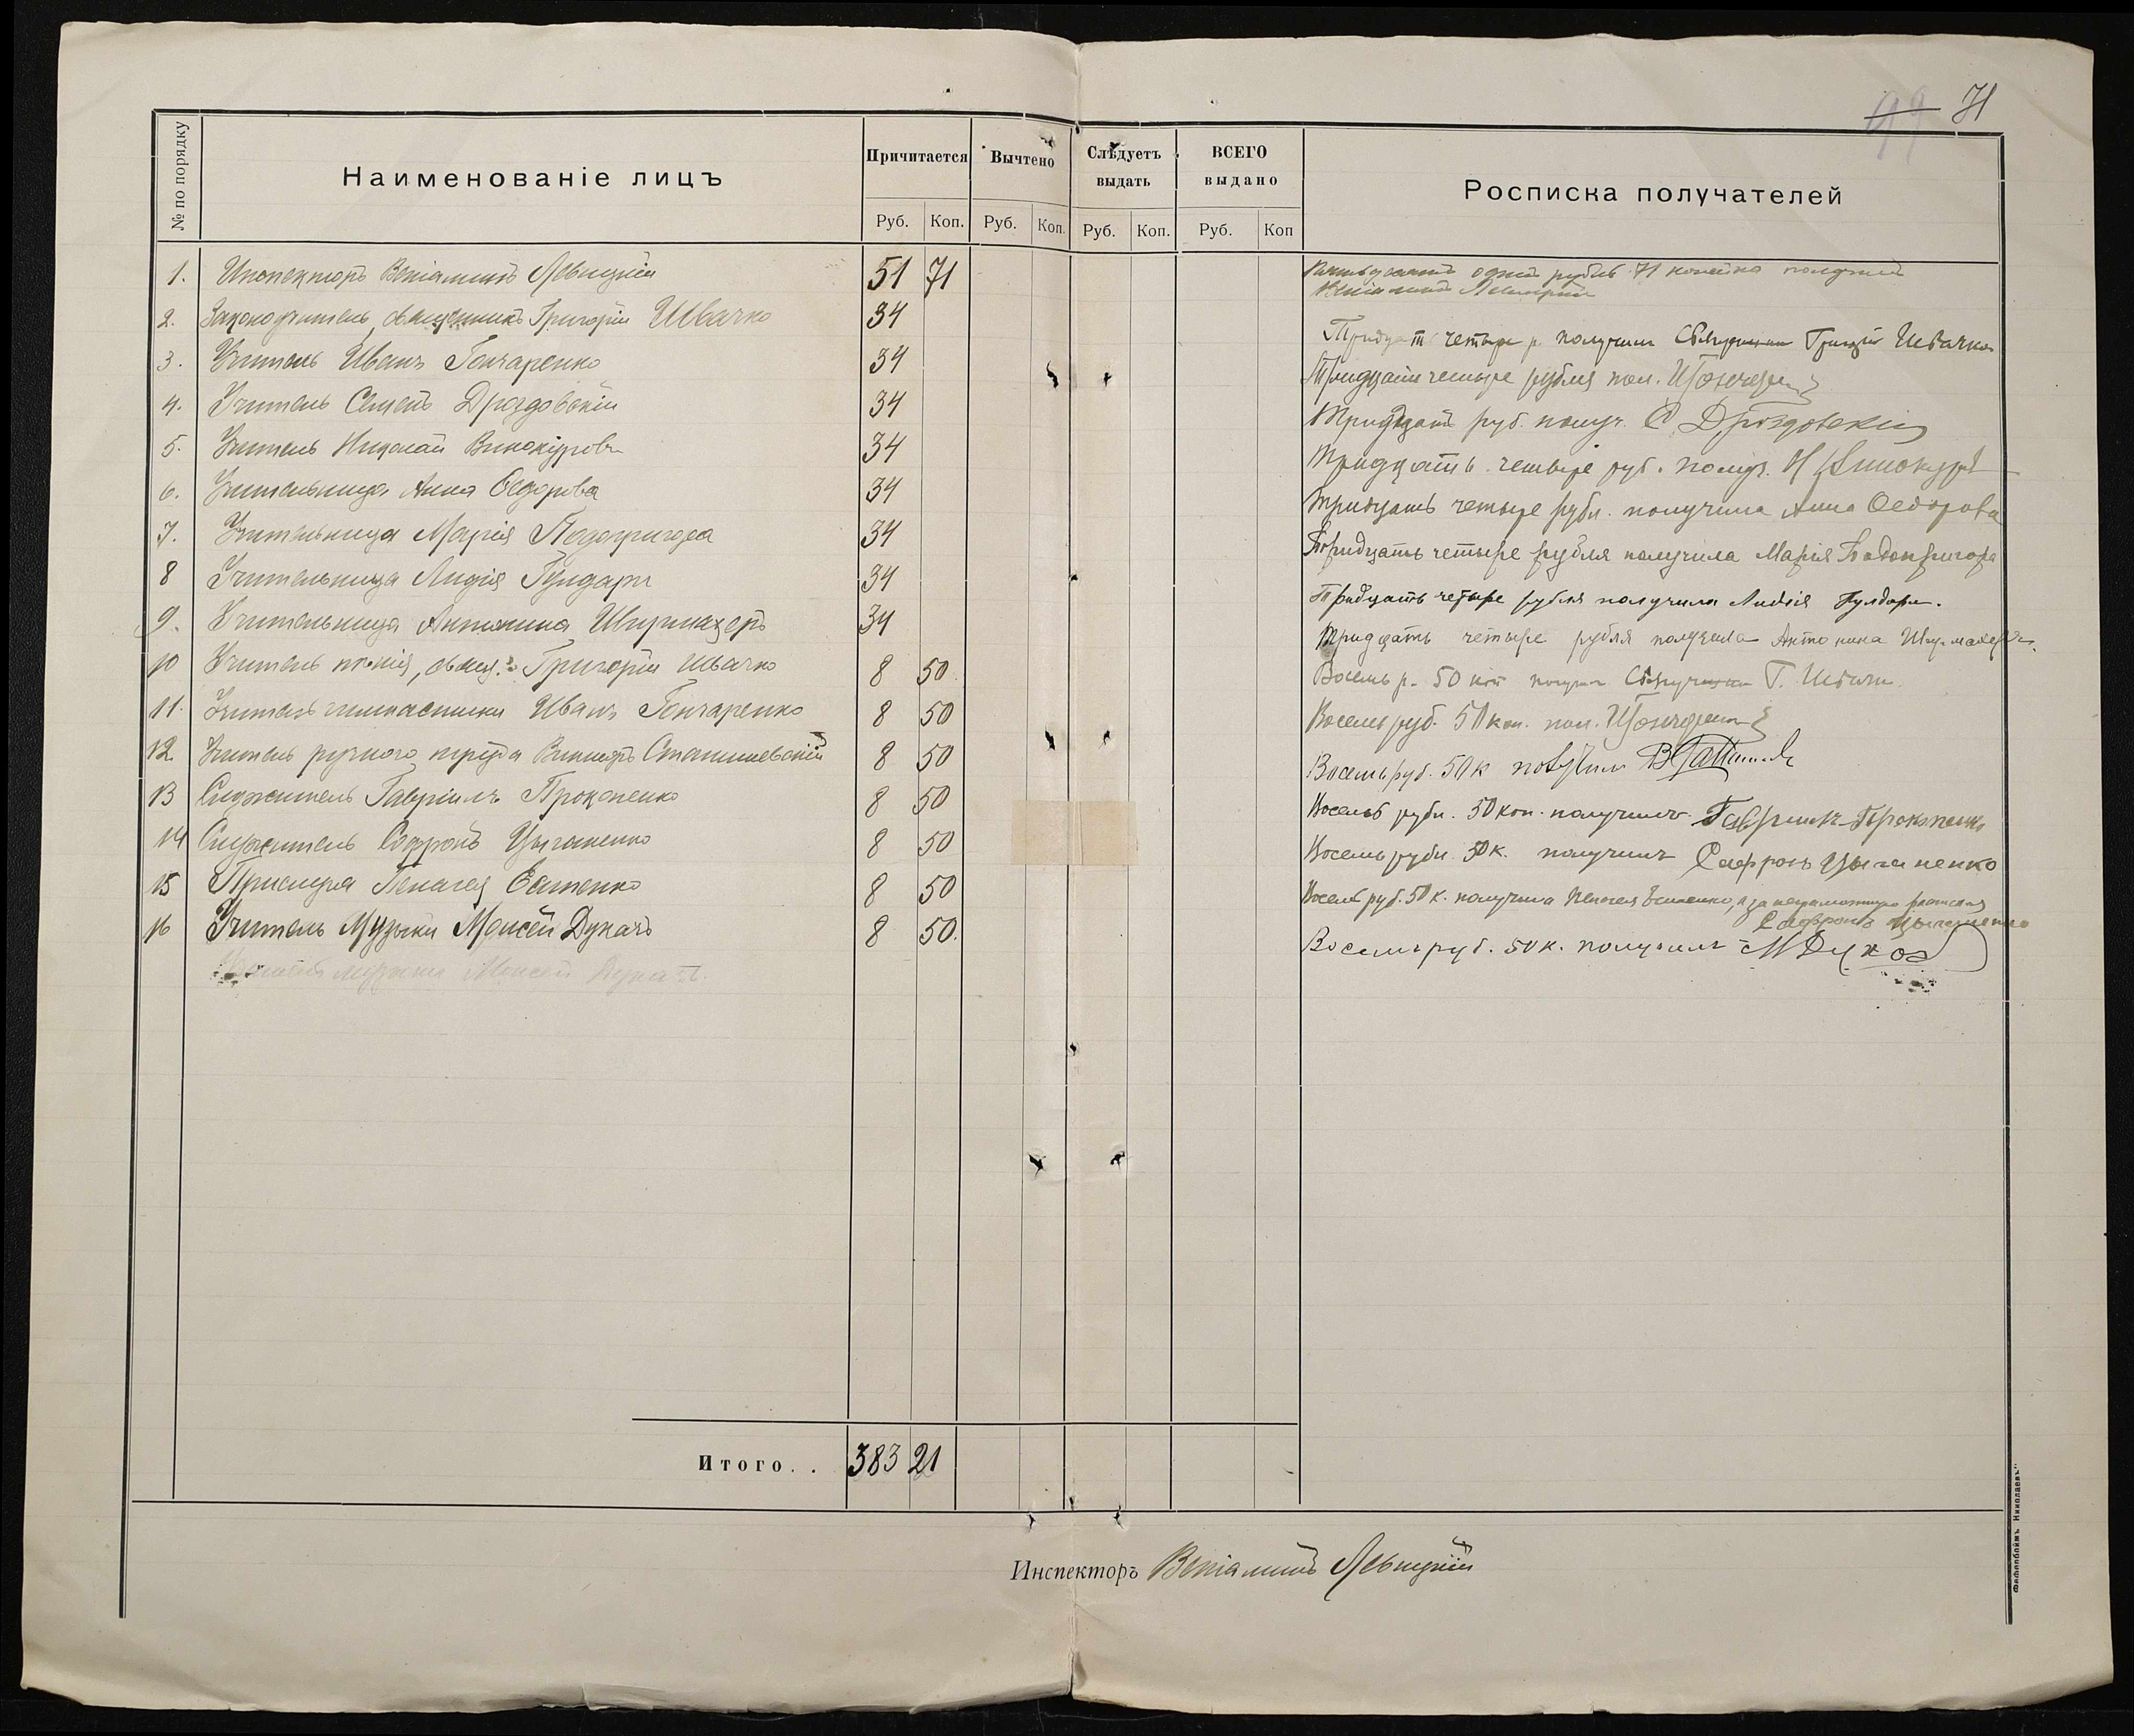 99 71
№ по порядку
Наименованіе лицъ
Причитается
Вычтено
Слѣдуетъ выдать
ВСЕГО выдано
Росписка получателей
Руб. Коп. Руб. Коп. Руб. Коп. Руб. Коп
1. Инспекторъ Веніаминъ Левицкій 51 71 Пятьдесятъ одинъ рубль 71 копейка получилъ
Веніаминъ Левицкій
2. Законоучитель, священникъ Григорій Ивачко 34 Тридцать четыре р. получилъ Священникъ Григорій Ивачко
3. Учитель Иванъ Гончаренко 34 Тридцать четыре рубля пол. ИГончаренко
4. Учитель Семенъ Дроздовскій 34 Тридцать руб. получ. С Дроздовскій
5. Учитель Николай Винокуровъ 34 Тридцать четыре руб. получ. Н Винокуровъ
6. Учительница Анна Ѳедорова 34 Тридцать четыре рубл. получила Анна Ѳедорова
7. Учительница Марія Подопригора 34 Тридцать четыре рубля получила Марія Подопригора
8 Учительница Лидія Гулдари 34 Тридцать четыре рубля получила Лидія Гулдари.
9. Учительница Антонина 34 Тридцать четыре рубля получила Антонина
10 Учитель пѣнія, свящ. Григорій Ивачко 8 50. Восемь р. 50 коп получилъ Священникъ Г. Ивачко
11. Учитель гимнастики Иванъ Гончаренко 8 50 Восемь руб. 50 коп. пол. ИГончаренко
12. Учитель ручного труда Викторъ Станишевскій 8 50 Восемь руб. 50 к получилъ
13 Служитель Гавріилъ Прокопенко 8 50 Восемь рубл. 50 коп. получилъ Гавриилъ Прокопенко
14 Служитель Софронъ Цыганенко 8 50 Восемь рубл. 50 к. получилъ Сафронъ Цыганенко
15 Прислуга Пелагея Евтенко 8 50 Восемь руб. 50 к. получила Пелагея Евтенко, а за неграмотную росписался
Сафронъ Цыганенко
16 Учитель Музыки Моисей Дукачъ 8 50. Восемь руб. 50 к. получилъ МДукач
Учитель музыки Моисей Дукачъ.
Итого. . 383 21
Инспекторъ Веніаминъ Левицкій